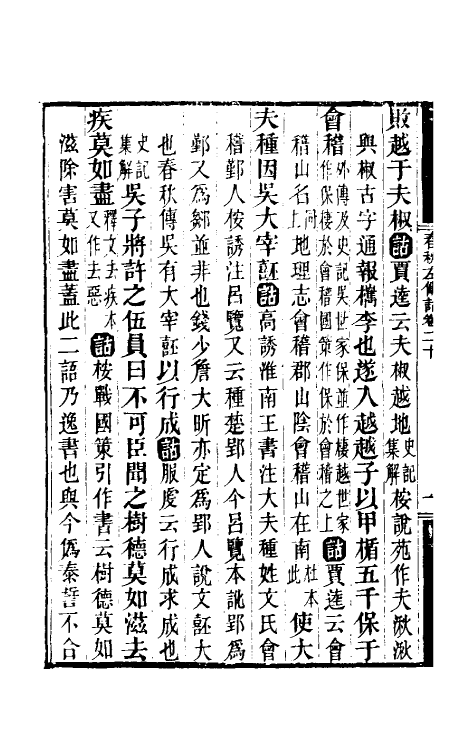 春秋左傳詁卷二十
一
敗越于夫椒詁賈逵云夫椒越地史記集解桉說苑作夫湫湫
與椒古字通報檇李也遂入越越子以甲楯五千保于
會稽外傳及史記吳世家保並作棲越世家作保棲於會稽國策作保於會稽之上詁賈逵云會
稽山名同上地理志會稽郡山陰會稽山在南杜本此使大
夫種因吳大宰嚭詁高誘淮南王書注大夫種姓文氏會
稽鄞人桉誘注呂覽又云種楚鄞人今呂覽本訛鄞爲
鄞又爲鄒並非也錢少詹大昕亦定爲郢人說文嚭大
也春秋傳吳有大宰嚭以行成詁服虔云行成求成也
史記集解吳子將許之伍員曰不可臣聞之樹德莫如滋去
疾莫如盡釋文去疾本又作去惡詁桉戰國策引作書云樹德莫如
滋除害莫如盡蓋此二語乃逸書也與今僞泰誓不合